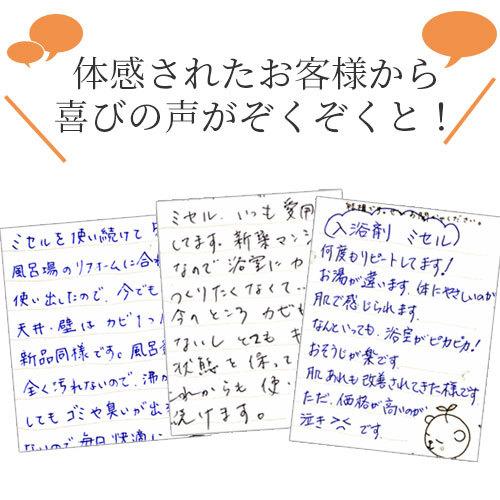 体感されたお客様から
喜びの声がぞくぞくと！
ミセルを使い続けて
風呂場のリフォームに合わ
使い出したので、今でも
天井・壁はカビ1つ
新品同様です。風呂
全く汚れないので、沸か
してもゴミや臭いが出
ないので毎日快適に
ミセル、いつも愛用
してます。新築マンシ
なので浴室にカ
つくりたくなくて…
今のところカビも
ないしとてもキ
状態を保って
これからも使い
続けます。
お聞かせください。
入浴剤 ミセル
何度もリピートしてます！
お湯が違います。体にやさしいのが
肌で感じられます。
なんといっても、浴室がピカピカ！
おそうじが楽です
肌あれも改善されてきた様です
ただ、価格が高いのが
泣き です。